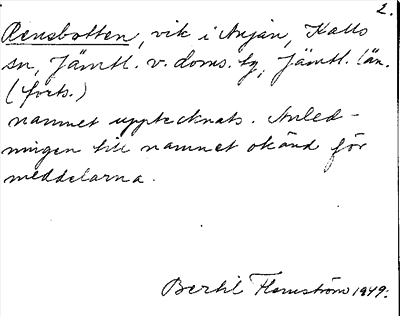 2.
Rensbotten, vik i Anjan, Kalls
sn, Jämtl. v. doms. tg, Jämtl. län.
(forts.)
namnet upptecknats. Anled-
ningen till namnet okänd för
meddelarna.
Bertil Flemström 1949.